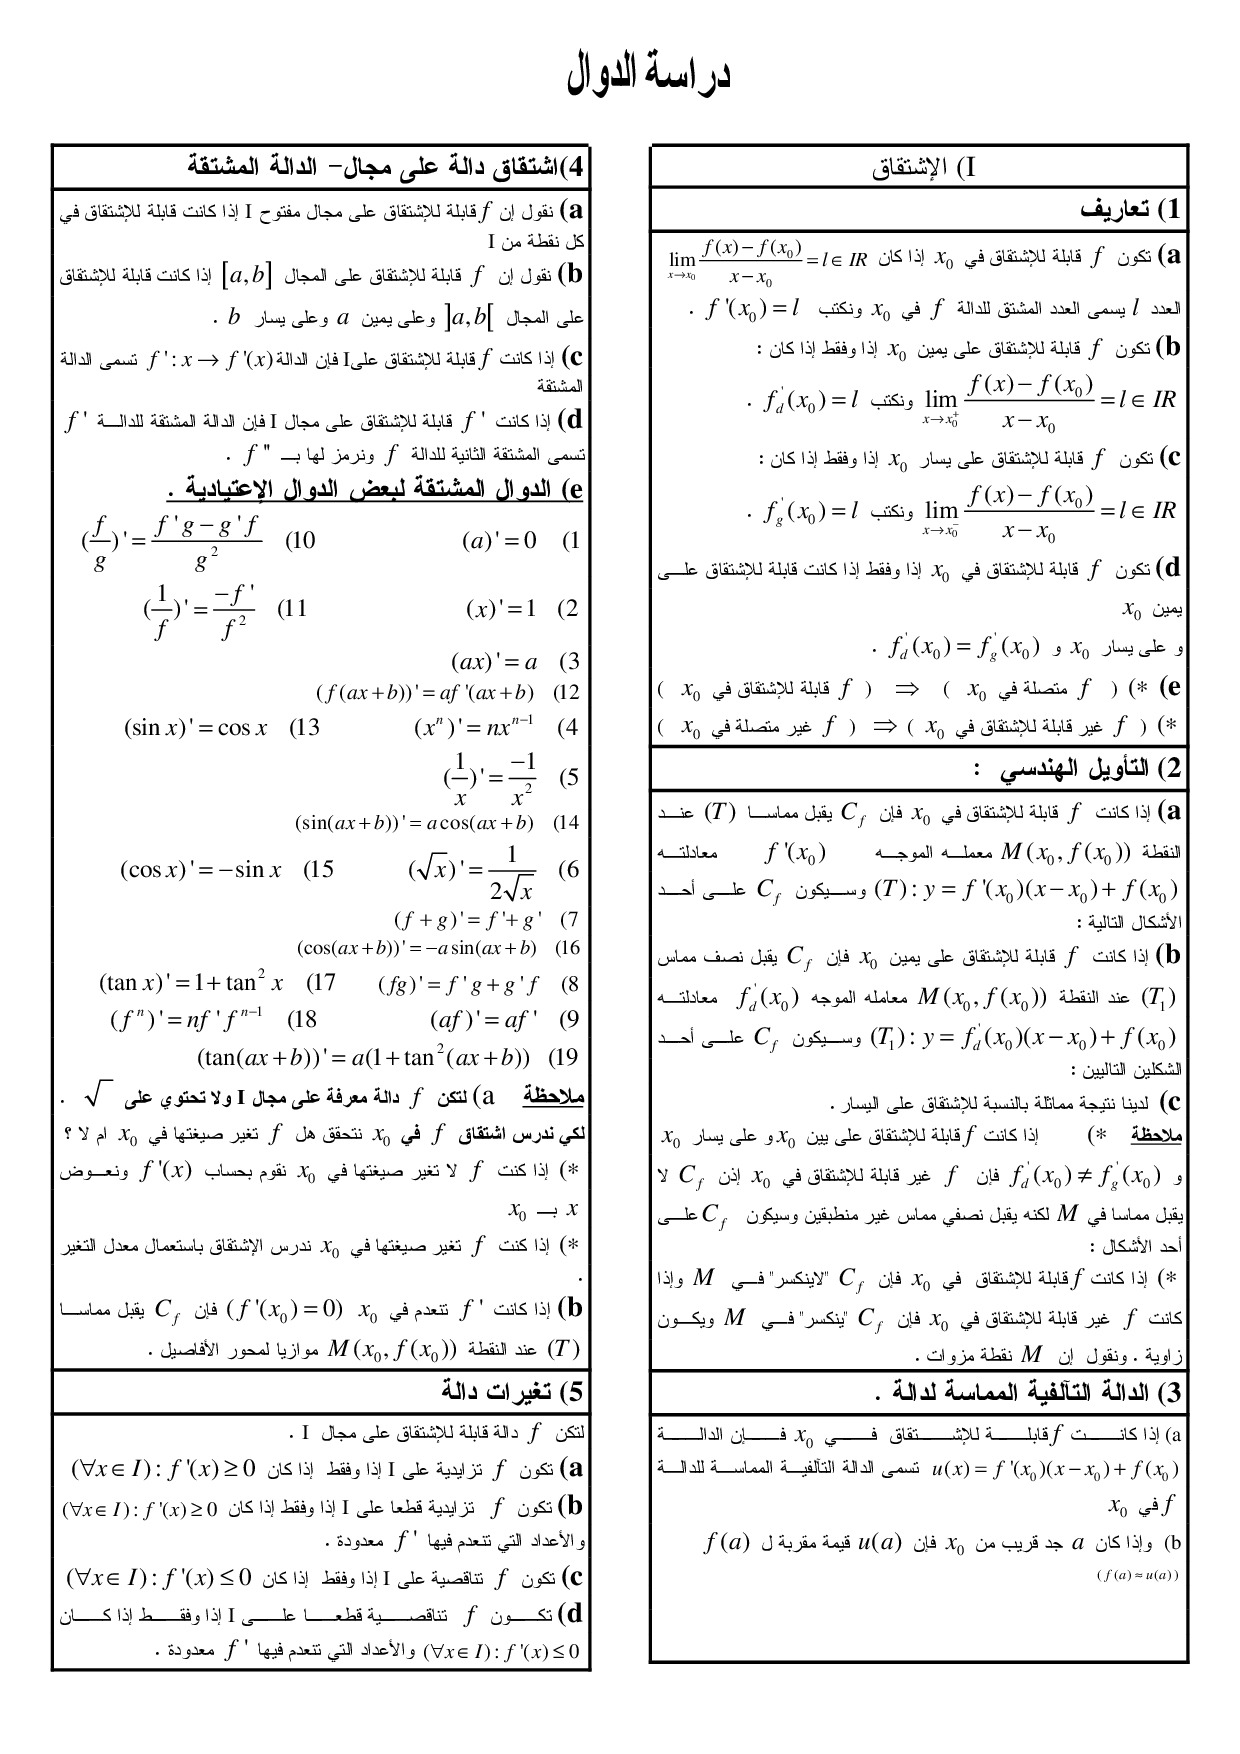 دراسة الدوال
I) الإشتقاق
1) تعاريف
a) تكون f قابلة للإشتقاق في x₀ إذا كان lim_{x→x₀} (f(x)−f(x₀))/(x−x₀) = l ∈ IR
العدد l يسمى العدد المشتق للدالة f في x₀ ونكتب f'(x₀) = l .
b) تكون f قابلة للإشتقاق على يمين x₀ إذا وفقط إذا كان :
lim_{x→x₀⁺} (f(x)−f(x₀))/(x−x₀) = l ∈ IR ونكتب f'_d(x₀) = l .
c) تكون f قابلة للإشتقاق على يسار x₀ إذا وفقط إذا كان :
lim_{x→x₀⁻} (f(x)−f(x₀))/(x−x₀) = l ∈ IR ونكتب f'_g(x₀) = l .
d) تكون f قابلة للإشتقاق في x₀ إذا وفقط إذا كانت قابلة للإشتقاق علـــى
يمين x₀
و على يسار x₀ و f'_d(x₀) = f'_g(x₀) .
e) *) ( f متصلة في x₀ ) ⇐ ( f قابلة للإشتقاق في x₀ )
*) ( f غير قابلة للإشتقاق في x₀ ) ⇐ ( f غير متصلة في x₀ )
2) التأويل الهندسي :
a) إذا كانت f قابلة للإشتقاق في x₀ فإن C_f يقبل مماســا (T) عنــد
النقطة M(x₀, f(x₀)) معملــه الموجــه f'(x₀) معادلتــه
(T): y = f'(x₀)(x−x₀)+f(x₀) وســيكون C_f علــى أحــد
الأشكال التالية :
b) إذا كانت f قابلة للإشتقاق على يمين x₀ فإن C_f يقبل نصف مماس
(T₁) عند النقطة M(x₀, f(x₀)) معامله الموجه f'_d(x₀) معادلتــه
(T₁): y = f'_d(x₀)(x−x₀)+f(x₀) وســيكون C_f علــى أحــد
الشكلين التاليين :
c) لدينا نتيجة مماثلة بالنسبة للإشتقاق على اليسار .
ملاحظة *) إذا كانت f قابلة للإشتقاق على يين x₀ و على يسار x₀
و f'_d(x₀) ≠ f'_g(x₀) فإن f غير قابلة للإشتقاق في x₀ إذن C_f لا
يقبل مماسا في M لكنه يقبل نصفي مماس غير منطبقين وسيكون C_f علــى
أحد الأشكال :
*) إذا كانت f قابلة للإشتقاق في x₀ فإن C_f "لاينكسر" فــي M وإذا
كانت f غير قابلة للإشتقاق في x₀ فإن C_f "ينكسر" فــي M ويكــون
زاوية . ونقول إن M نقطة مزوات .
3) الدالة التآلفية المماسة لدالة .
a) إذا كانـــت f قابلـــة للإشـــتقاق فـــي x₀ فـــإن الدالـــة
u(x) = f'(x₀)(x−x₀)+f(x₀) تسمى الدالة التآلفيــة المماســة للدالــة
f في x₀
b) وإذا كان a جد قريب من x₀ فإن u(a) قيمة مقربة ل f(a)
(f(a) ≈ u(a))
4)اشتقاق دالة على مجال- الدالة المشتقة
a) نقول إن f قابلة للإشتقاق على مجال مفتوح I إذا كانت قابلة للإشتقاق في
كل نقطة من I
b) نقول إن f قابلة للإشتقاق على المجال [a,b] إذا كانت قابلة للإشتقاق
على المجال ]a,b[ وعلى يمين a وعلى يسار b .
c) إذا كانت f قابلة للإشتقاق علىI فإن الدالة f' : x → f'(x) تسمى الدالة
المشتقة
d) إذا كانت f' قابلة للإشتقاق على مجال I فإن الدالة المشتقة للدالــة f'
تسمى المشتقة الثانية للدالة f ونرمز لها بــ f" .
e) الدوال المشتقة لبعض الدوال الإعتيادية .
1) (a)' = 0 10) (f/g)' = (f'g − g'f)/g²
2) (x)' = 1 11) (1/f)' = −f'/f²
3) (ax)' = a
12) (f(ax+b))' = af'(ax+b)
4) (xⁿ)' = nxⁿ⁻¹ 13) (sin x)' = cos x
5) (1/x)' = −1/x²
14) (sin(ax+b))' = a cos(ax+b)
6) (√x)' = 1/(2√x) 15) (cos x)' = −sin x
7) (f+g)' = f'+g'
16) (cos(ax+b))' = −a sin(ax+b)
8) (fg)' = f'g + g'f 17) (tan x)' = 1+tan² x
9) (af)' = af' 18) (fⁿ)' = nf'fⁿ⁻¹
19) (tan(ax+b))' = a(1+tan²(ax+b))
ملاحظة a) لتكن f دالة معرفة على مجال I ولا تحتوي على √ .
لكي ندرس اشتقاق f في x₀ نتحقق هل f تغير صيغتها في x₀ ام لا ؟
*) إذا كنت f لا تغير صيغتها في x₀ نقوم بحساب f'(x) ونعــوض
x بــ x₀
*) إذا كنت f تغير صيغتها في x₀ ندرس الإشتقاق باستعمال معدل التغير
.
b) إذا كانت f' تنعدم في x₀ (f'(x₀) = 0) فإن C_f يقبل مماســا
(T) عند النقطة M(x₀, f(x₀)) موازيا لمحور الأفاصيل .
5) تغيرات دالة
لتكن f دالة قابلة للإشتقاق على مجال I .
a) تكون f تزايدية على I إذا وفقط إذا كان (∀x∈I): f'(x) ≥ 0
b) تكون f تزايدية قطعا على I إذا وفقط إذا كان (∀x∈I): f'(x) ≥ 0
والأعداد التي تنعدم فيها f' معدودة .
c) تكون f تناقصية على I إذا وفقط إذا كان (∀x∈I): f'(x) ≤ 0
d) تكـــون f تناقصـــية قطعـــا علـــى I إذا وفقـــط إذا كـــان
(∀x∈I): f'(x) ≤ 0 والأعداد التي تنعدم فيها f' معدودة .